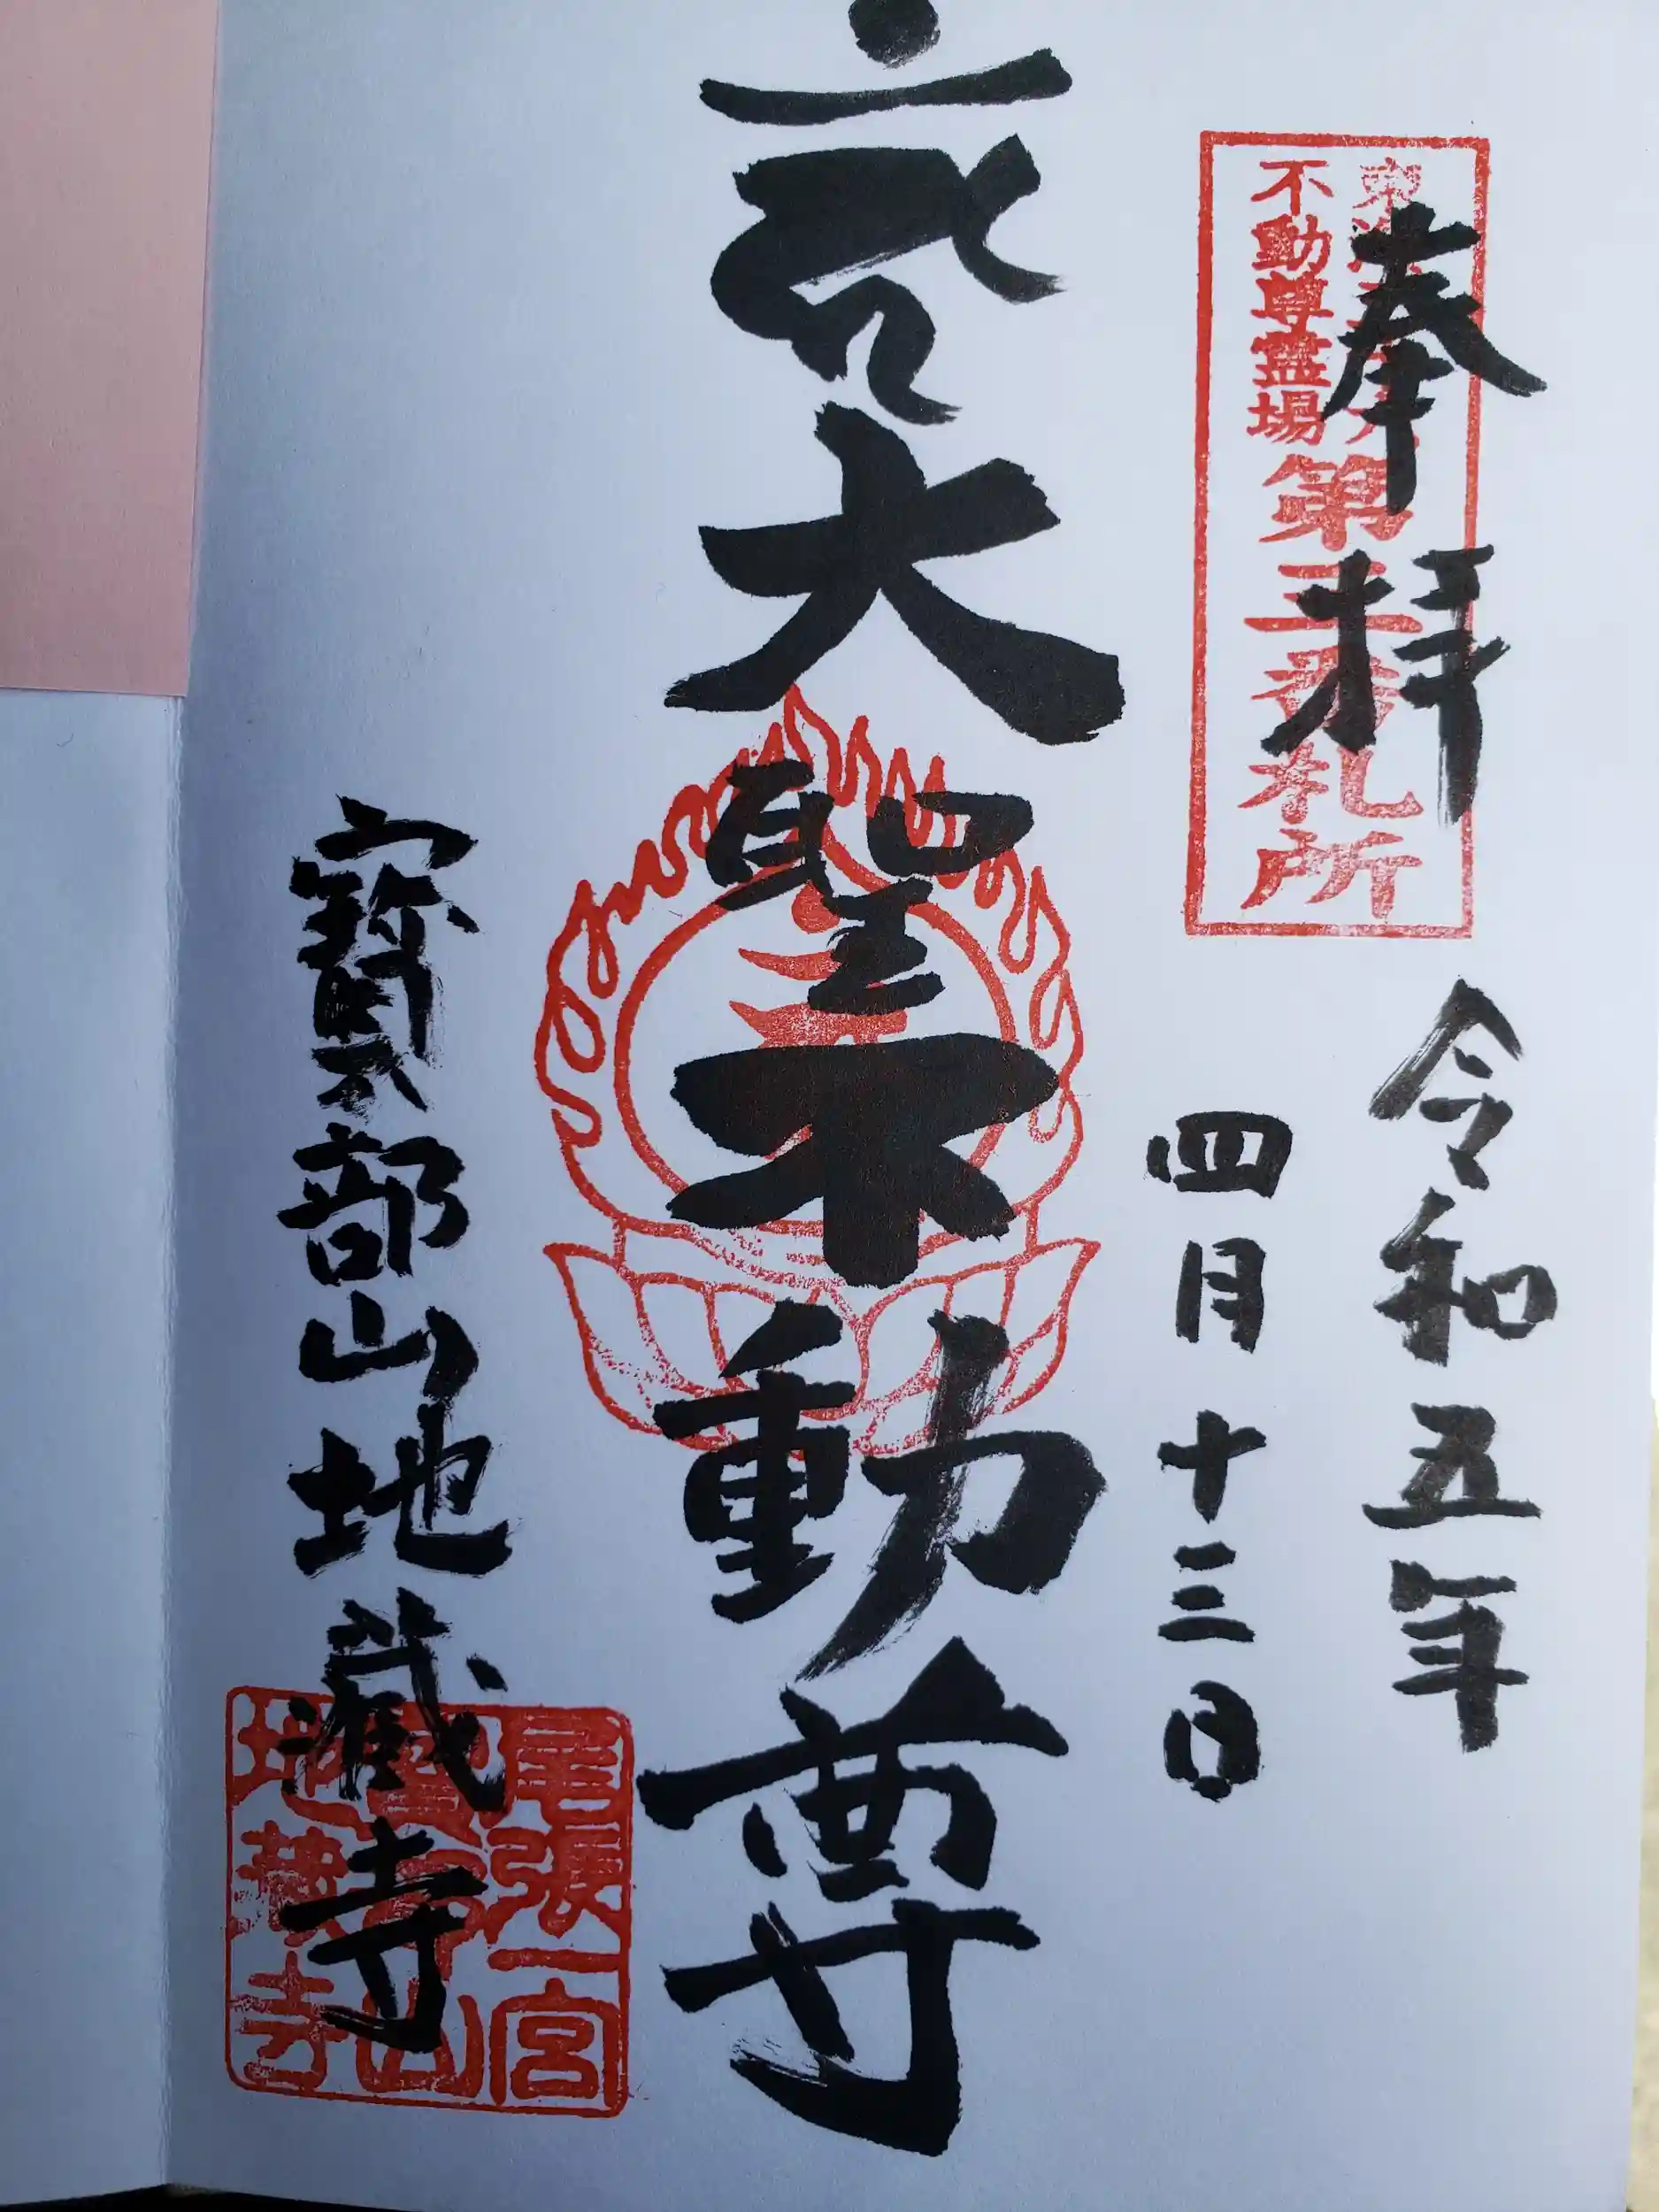 奉拝
不動尊霊場
第三番札所
令和五年
四月十三日
大聖不動尊
寳部山地蔵寺
尾張一宮
地蔵寺